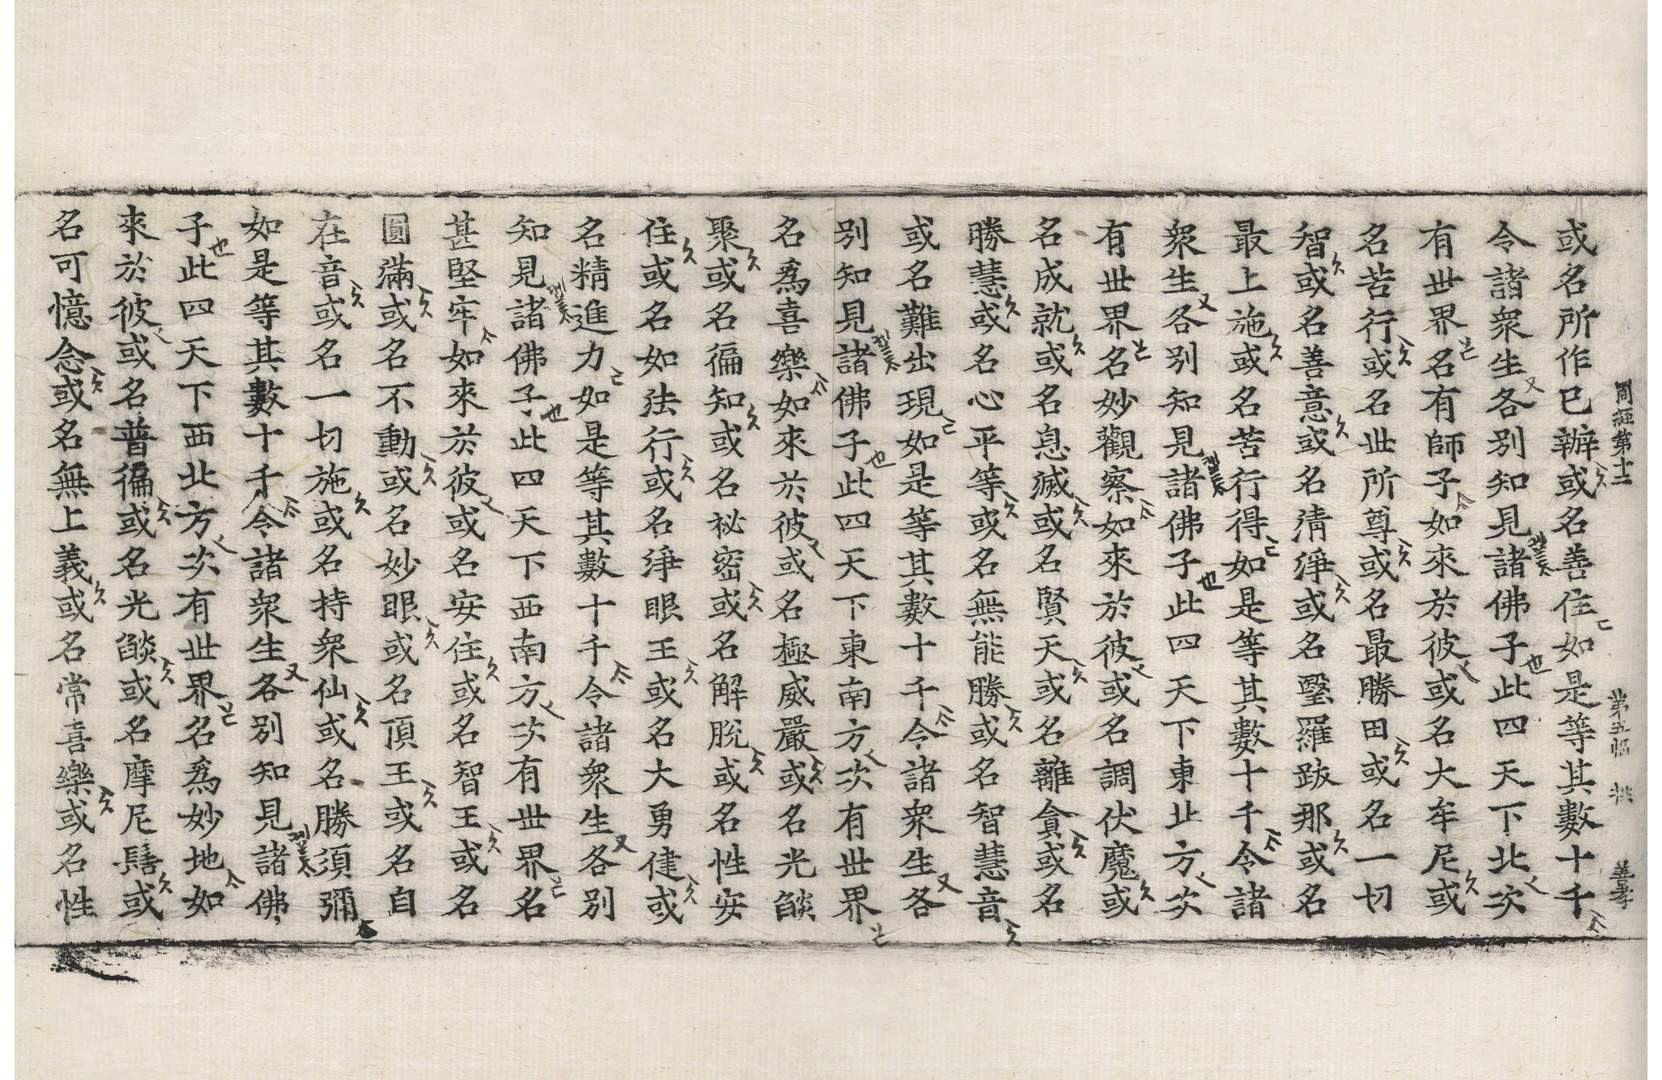 周經第十二 第五幅
或名所作已辦或名善住如是等其數十千
令諸衆生各別知見諸佛子此四天下北次
有世界名有師子如來於彼或名大牟尼或
名苦行或名世所尊或名最勝田或名一切
智或名善意或名清淨或名瑿羅跋那或名
最上施或名苦行得如是等其數十千令諸
衆生各別知見諸佛子此四天下東北方次
有世界名妙觀察如來於彼或名調伏魔或
名成就或名息滅或名賢天或名離貪或名
勝慧或名心平等或名無能勝或名智慧音
或名難出現如是等其數十千令諸衆生各
別知見諸佛子此四天下東南方次有世界
名爲喜樂如來於彼或名極威嚴或名光燄
聚或名徧知或名祕密或名解脫或名性安
住或名如法行或名淨眼王或名大勇健或
名精進力如是等其數十千令諸衆生各別
知見諸佛子此四天下西南方次有世界名
甚堅牢如來於彼或名安住或名智王或名
圓滿或名不動或名妙眼或名頂王或名自
在音或名一切施或名持衆仙或名勝須彌
如是等其數十千令諸衆生各別知見諸佛
子此四天下西北方次有世界名爲妙地如
來於彼或名普徧或名光燄或名摩尼髻或
名可憶念或名無上義或名常喜樂或名性